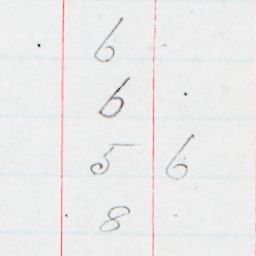 6
6
5 6
8